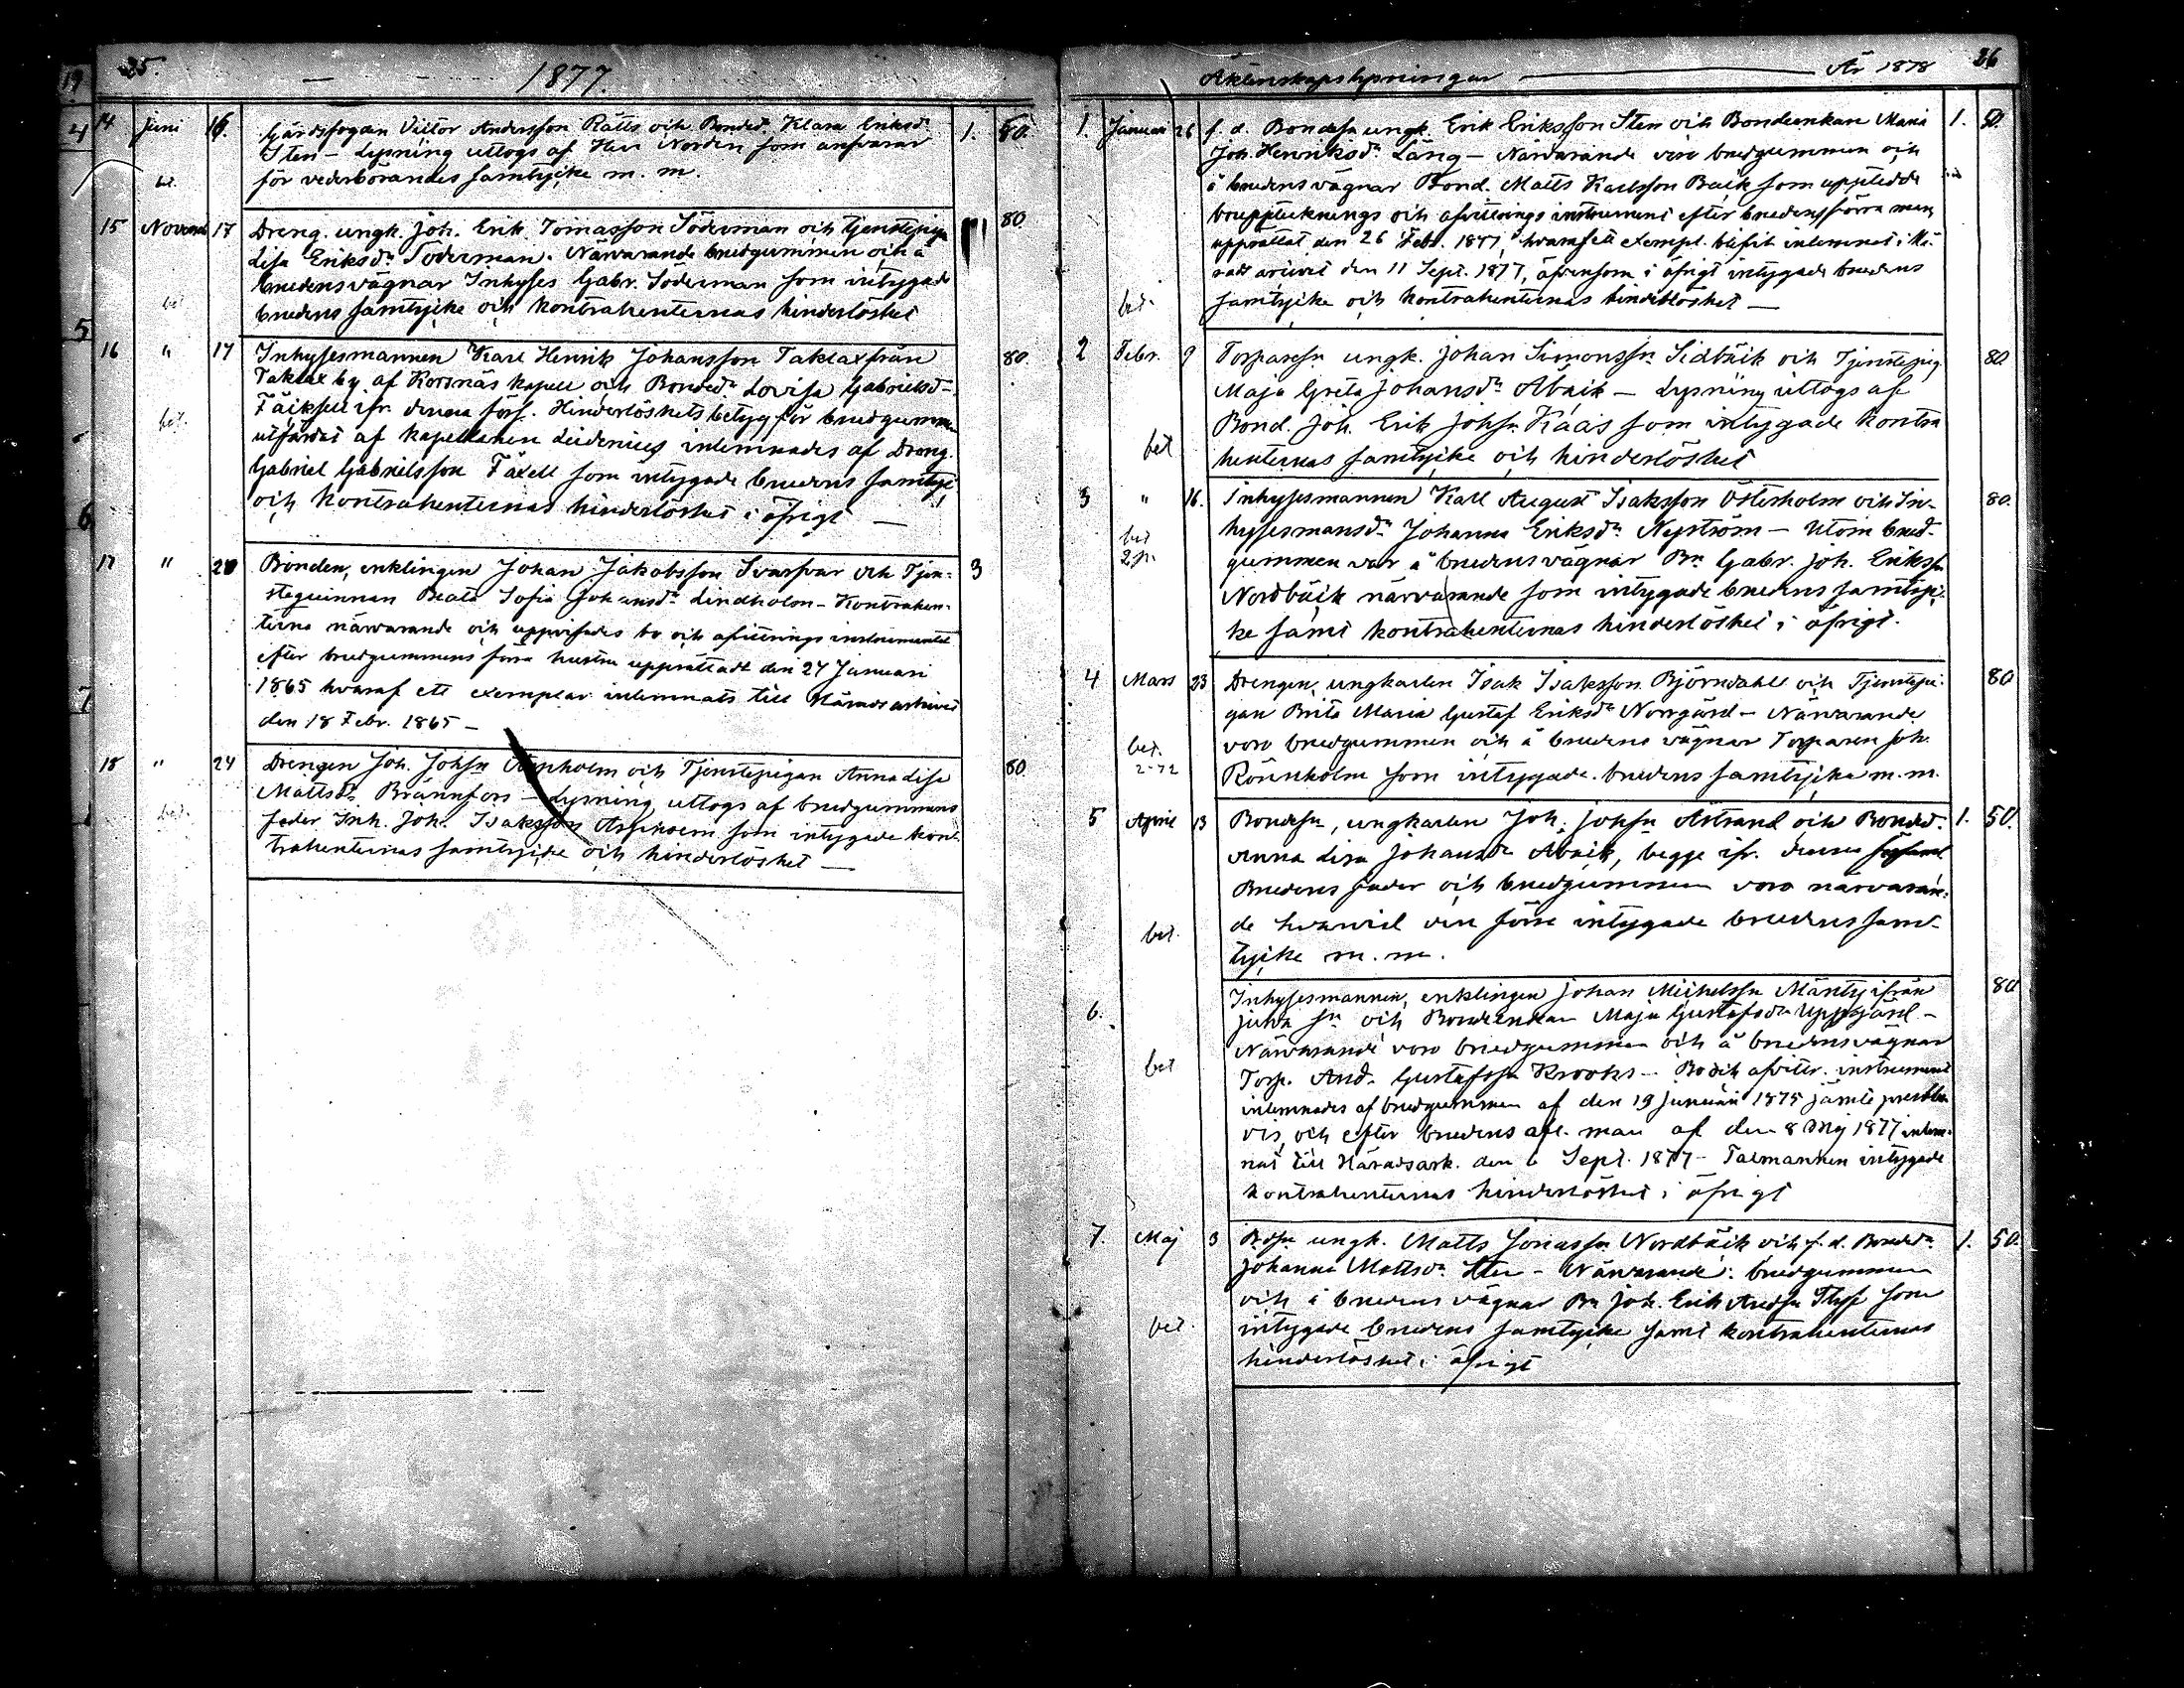 25.
1877.
14 Juni 16. Gårdsfogden Victor Andersson Rätts och Bonded. Klara Eriksdr 1. 50.
Sten – Lysning uttogs af Herr Nordin som ansvarar
för vederbörandes samtycke m. m.
bet.
15 Novemb 17 Dreng. ungk. Joh. Erik Tomasson Söderman och tjenstepiga 80
Lisa Eriksdr Söderman. Närvarande brudgummen och å
brudens vägnar Inhyses Gabr. Söderman som intygade
bet
brudens samtycke och kontrahenternas hinderlöshet
16 " 17 Inhysesmannen Karl Henrik Johansson Taklax från 80.
Taklax by af Korsnäs kapell och Bondedr Lovisa Gabrielsd.
ifr. denna förs. Hinderlöshetsbetyg för brudgummen
bet.
utfärdat af kapellanen Leidenius inlemnades af Dreng.
Gabriel Gabrielsson som intygade brudens samtyc
och kontrahenternas hinderlöshet i öfrigt —
17 " 20 Bonden, enklingen Johan Jakobsson Svarfvar och Tjen- 3
steqvinnan Beata Sofia Johansdr Lindholm – Kontrahen-
terna närvarande och uppvisades bo och afvittrings instrumentet
efter brudgummens förra hustru upprättadt den 24 Januari
1865 hvaraf ett exemplar inlemnats till Häradsarkivet
den 18 Febr. 1865 –
18 " 24 Drengen Joh. Johsn Aspholm och Tjenstepigan Anna Lisa 80
Mattsdr Brännfors – Lysning uttogs af brudgummens
bet.
fader Inh. Joh. Isaksson Aspholm som intygade kont-
trahenternas samtycke och hinderlöshet —
Äktenskapslysningar — År 1878 26
1. Januari 26 f. d. Bondesn ungk. Erik Eriksson Sten och Bondeenkan Maria 1. 50.
Joh. Henriksdr Lång – Närvarande voro brudgummen och
å brudens vägnar Bond. Matts Karlsson Back som uppstedde
bouppteknings och afvittrings instrument efter brudens förra man
upprättat den 26 Febr. 1877, hvaraf ett exempl. blifvit inlemnat i Hä-
rads arkivet den 11 Sept. 1877, äfvensom i öfrigt intygade brudens
bet.
samtycke och kontrahenternas hinderlöshet —
2 Febr. 9 Torparesn ungk. Johan Simonssn Sidbäck och Tjenstepig. 80.
Maja Greta Johansdr Åbäck – Lysning uttogs af
Bond. Joh. Erik Johsn Kaas som intygade kontra
bet
henternas samtycke och hinderlöshet
3 " 16. Inhysesmannen Karl August Isaksson Österholm och In- 80.
hysesmansdr Johanna Eriksdr Nyström – Utom brud-
bet
gummen var å brudens vägnar Bn Gabr. Joh. Erikssn
Nordbäck närvarande som intygade brudens samtyc-
ke samt kontrahenternas hinderlöshet i öfrigt.
4 Mars 23 Drengen, ungkarlen Isak Isaksson Björndahl och Tjenstepi- 80
gan Brita Maria Gustaf Eriksdr Norrgård – Närvarande
bet.
2-72
voro brudgummen och å brudens vägnar Torparen Joh.
Rönnholm som intygade brudens samtycke m. m.
5 April 13 Bondesn, ungkarlen Joh. Johsn Åstrand och Bonded. 1. 50.
Anna Lisa Johansdr Åbäck, begge ifr. denna
Brudens fader och brudgummen voro närvaran-
bet.
de hvarvid den förre intygade brudens sam-
tycke m. m.
6. Inhysesmannen, enklingen Johan Michelssn Mänty ifrån 80
och Bondeenkan Maja Gustafsdr Uppgård –
Närvarande voro brudgummen och å brudens vägnar
bet
Torp. And. Gustafssn Krooks – Bo och afvittr. instrument
inlemnades af brudgummen af den 19 Januari 1875 jämte prestbe-
vis, och efter brudens afl. man af den 8 Maj 1877 inlem-
nat till Häradsark. den 6 Sept. 1877 – Talmannen intygade
kontrahenternas hinderlöshet i öfrigt
7. Maj 3 Bdsn ungk. Matts Jonassn Nordbäck och f. d. Bondedr 1. 50.
Johanna Mattsdr Sten – Närvarande: brudgummen
och å brudens vägnar Bn Joh. Erik Andsn som
bet.
intygade brudens samtycke samt kontrahenternas
hinderlöshet i öfrigt